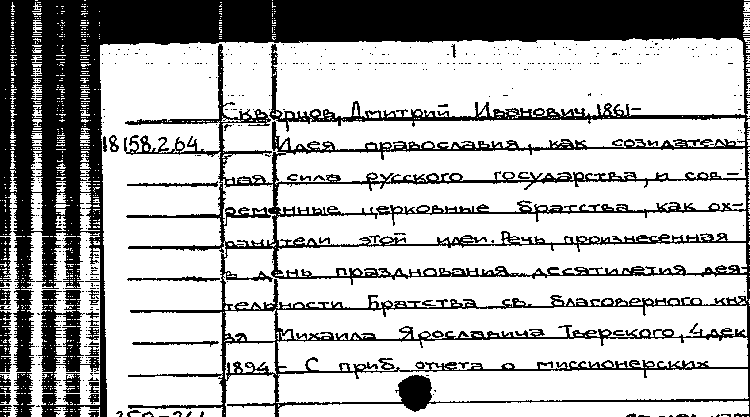 Скворцов, Дмитрий Иванович, 1861-
18158.2.64. Идея православия, как созидатель-
ная сила русского государства, и сов-
ременные церковные братства, как ох-
ранители этой идеи. Речь, произнесенная
в день празднования десятилетия дея-
тельности Братства св. благоверного кня
зя Михаила Ярославича Тверского, 4 дек
1894.- С приб. отчета о миссионерских